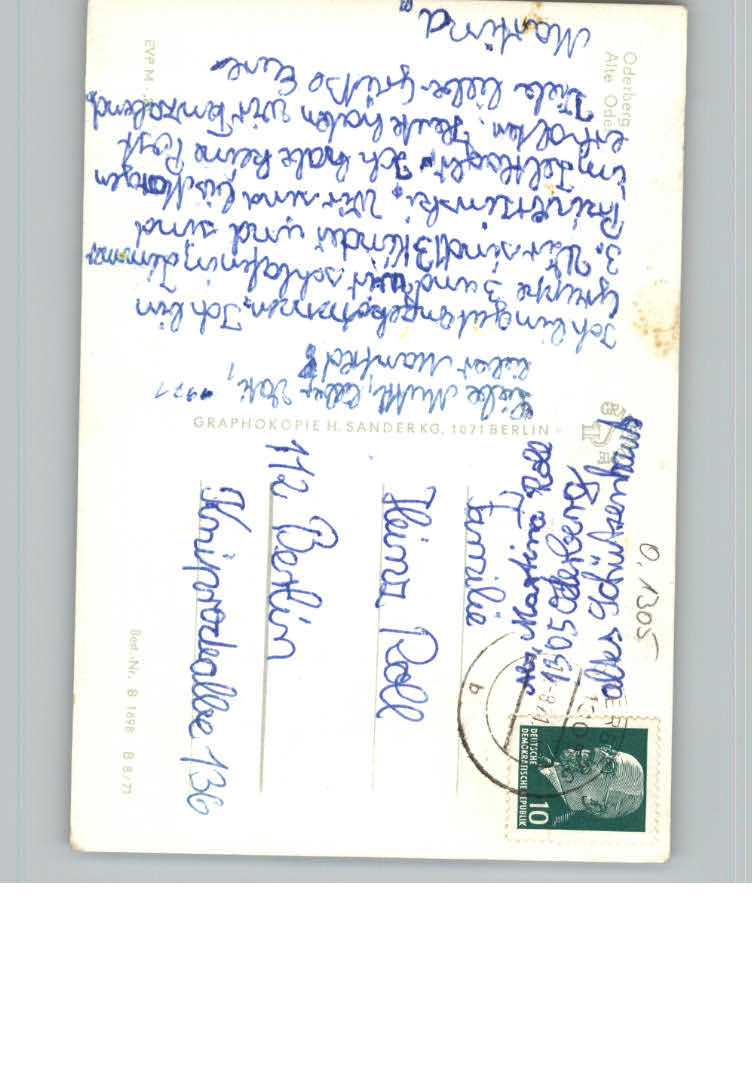 Oderberg
Alte Ode
Liebe Mutti, lieber Vati, 1971
lieber Manfred!
Ich bin gut angekommen. Ich bin
Gruppe 3 und wir schlafen in Zimmer
3. Wir sind 13 Kinder und sind
Wir sind bis Morgen
im Zelt Ich habe keine Post
erhalten. Heute haben wir Tanzabend.
Viele liebe Grüße Eure
Martina
EVP M
GRAPHOKOPIE H. SANDER KG, 1071 BERLIN
Abs. Martina Roll
1305 Oderberg
altes Schützenhaus
0.1305
DEUTSCHE
DEMOKRATISCHE REPUBLIK
10
Familie
Heinz Roll
112 Berlin
Kniprodeallee 136
Best.-Nr. B 1898 B 8/71